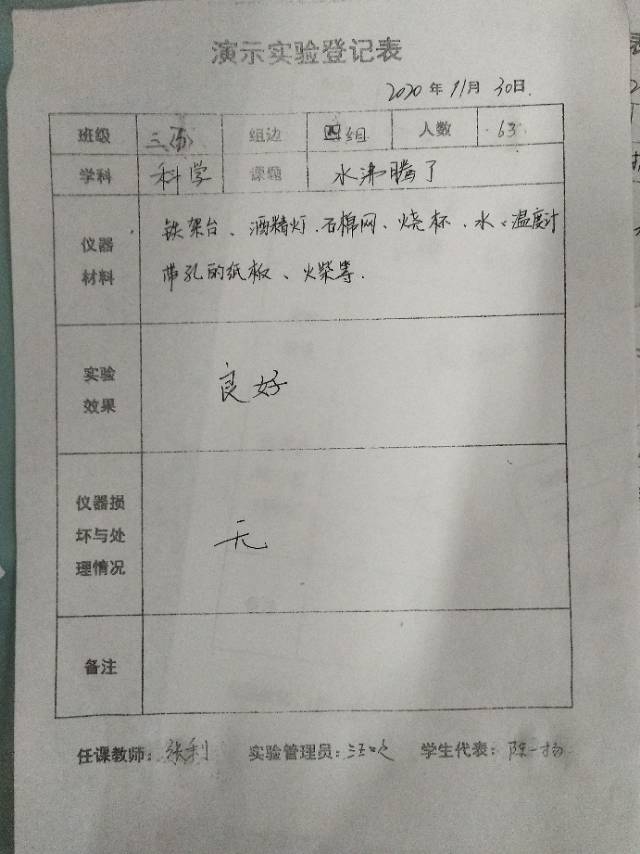 演示实验登记表
2020年11月30日
班级 组边 四组 人数 63
学科 科学 课题 水沸腾了
仪器材料
铁架台、酒精灯、石棉网、烧杯、水、温度计
带孔的纸板、火柴等.
实验效果
良好
仪器损坏与处理情况
无
备注
任课教师:张利 实验管理员: 学生代表:陈一扬